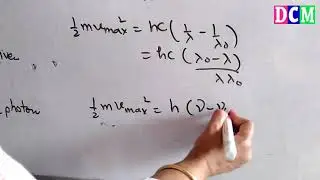 DCM
½ m v max² = hc (1/λ - 1/λ₀)
= hc (λ₀ - λ) / λλ₀
photon ½ m v max² = h (ν - ν